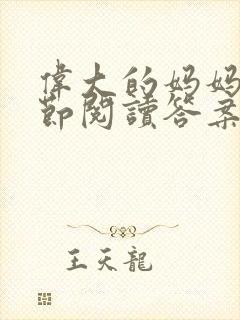 偉大的妈妈
節閱讀答案
王天龍